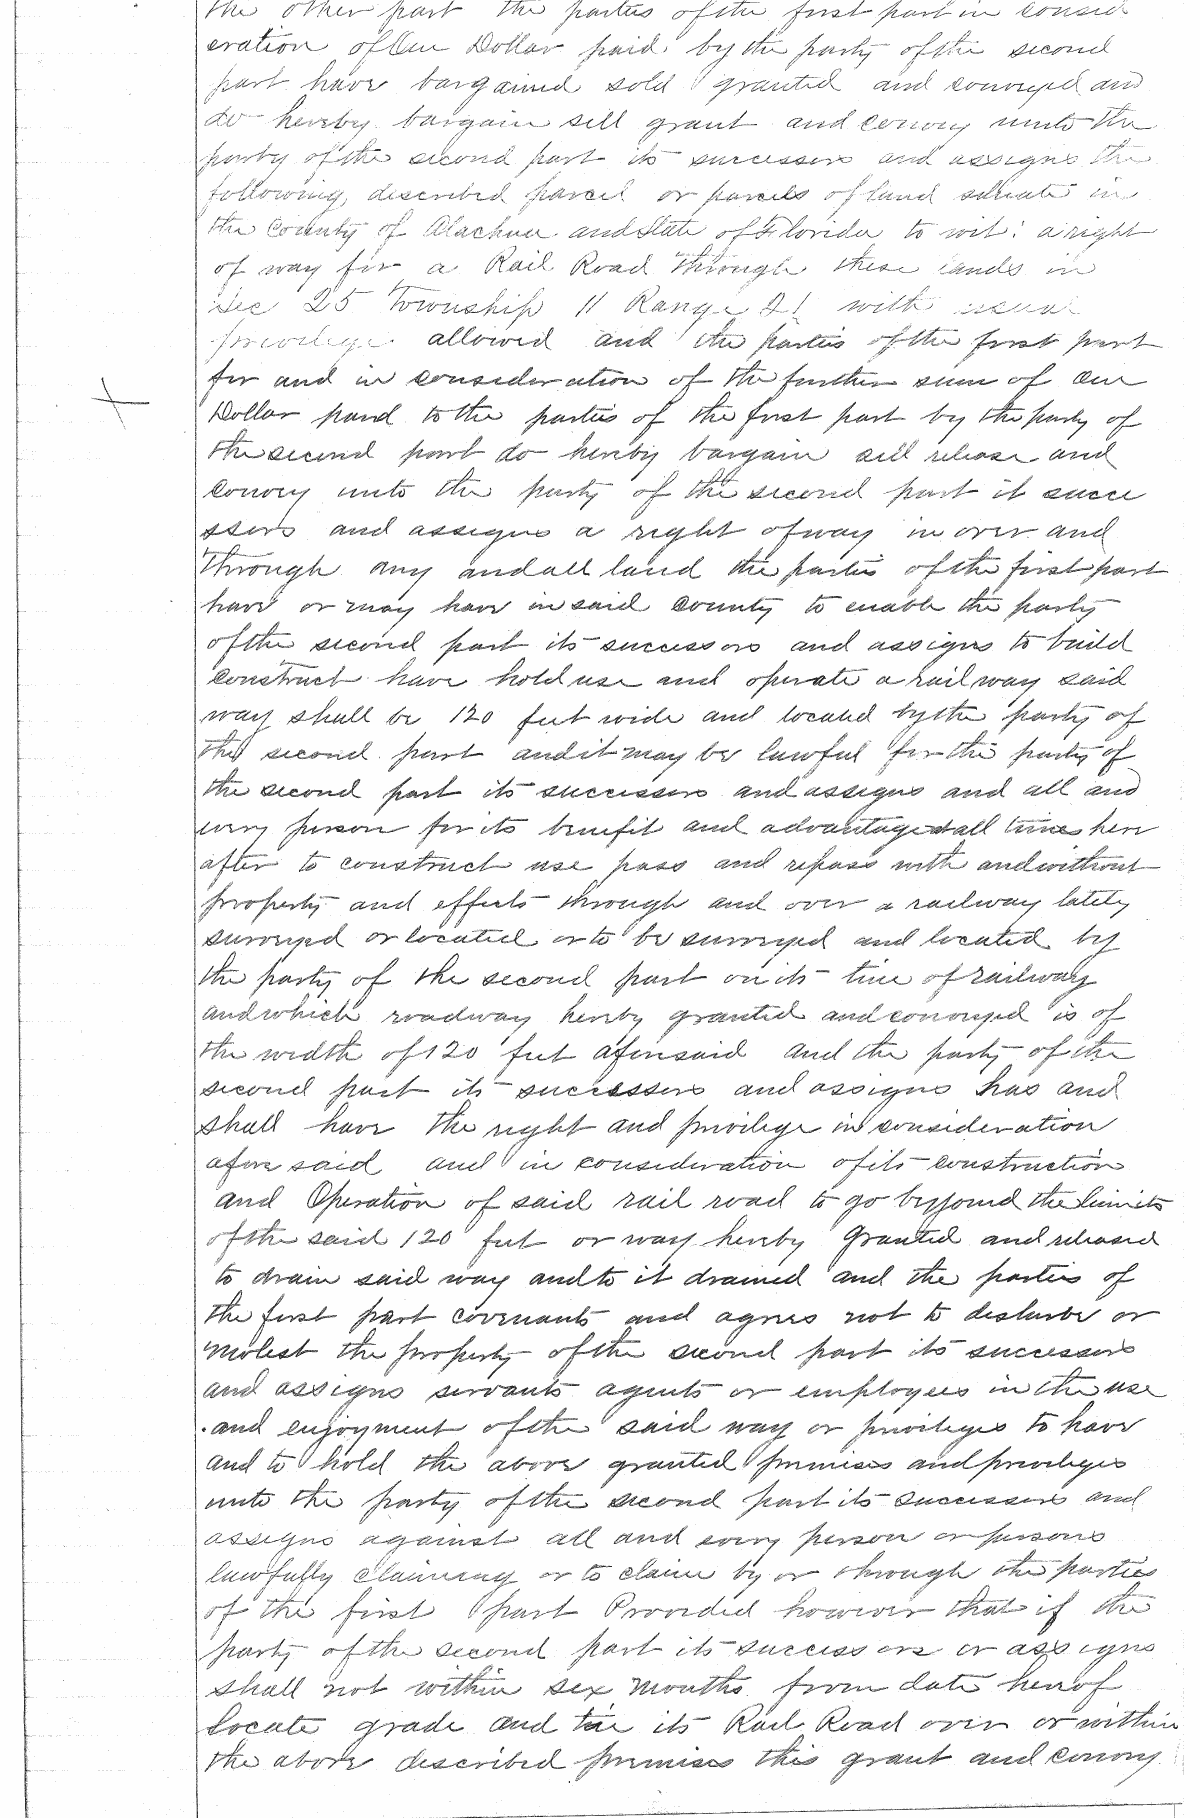 the other part the parties of the first part in consid
eration of One Dollar paid by the party of the second
part have bargained sold granted and conveyed and
do hereby bargain sell grant and convey unto the
party of the second part its successors and assigns the
following described parcel or parcels of land situate in
the County of Alachua and State of Florida to wit: a right
of way for a Rail Road Through these lands in
Sec 25 Township 11 Range 21 with usual
privilege allowed and the parties of the first part
for and in consideration of the further sum of One
Dollar paid to the parties of the first part by the party of
the second part do hereby bargain sell release and
convey unto the party of the second part it succe
ssors and assigns a right of way in over and
Through any and all land the parties of the first part
have or may have in said County to enable the party
of the second part its successors and assigns to build
construct have hold use and operate a railway said
way shall be 120 feet wide and located by the party of
the second part and it may be lawful for the party of
the second part its successors and assigns and all and
every person for its benefit and advantage at all times here
after to construct use pass and repass with and without
property and effects through and over a railway lately
surveyed or located or to be surveyed and located by
the party of the second part on its line of railway
and which roadway hereby granted and conveyed is of
the width of 120 feet aforesaid and the party of the
second part its successors and assigns has and
shall have the right and privilege in consideration
afore said and in consideration of its construction
and Operation of said rail road to go beyond the limits
of the said 120 feet or way hereby Granted and released
to drain said way and to it drained and the parties of
the first part covenants and agrees not to disturb or
molest the property of the second part its successors
and assigns servants agents or employees in the use
and enjoyment of the said way or privileges to have
and to hold the above granted premises and privileges
unto the party of the second part its successors and
assigns against all and every person or persons
lawfully claiming or to claim by or through the parties
of the first part Provided however that if the
party of the second part its successors or assigns
shall not within six months from date hereof
locate grade and tie its Rail Road over or within
the above described premises this grant and convey